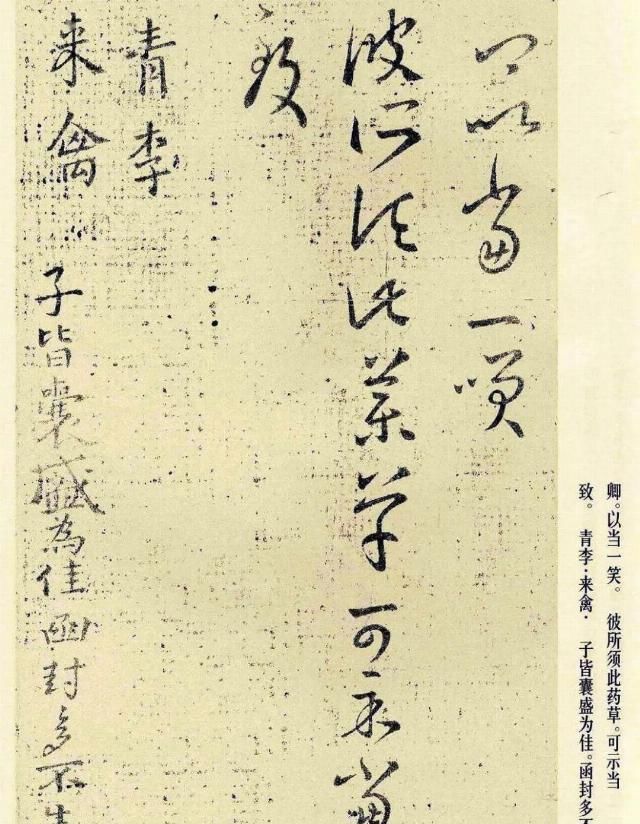 以当一笑
彼所须此药草可示当
致
青李
来禽 子皆囊盛为佳函封多不生
卿。以当一笑。 彼所须此药草。可示当
致。 青李·来禽· 子皆囊盛为佳。函封多不